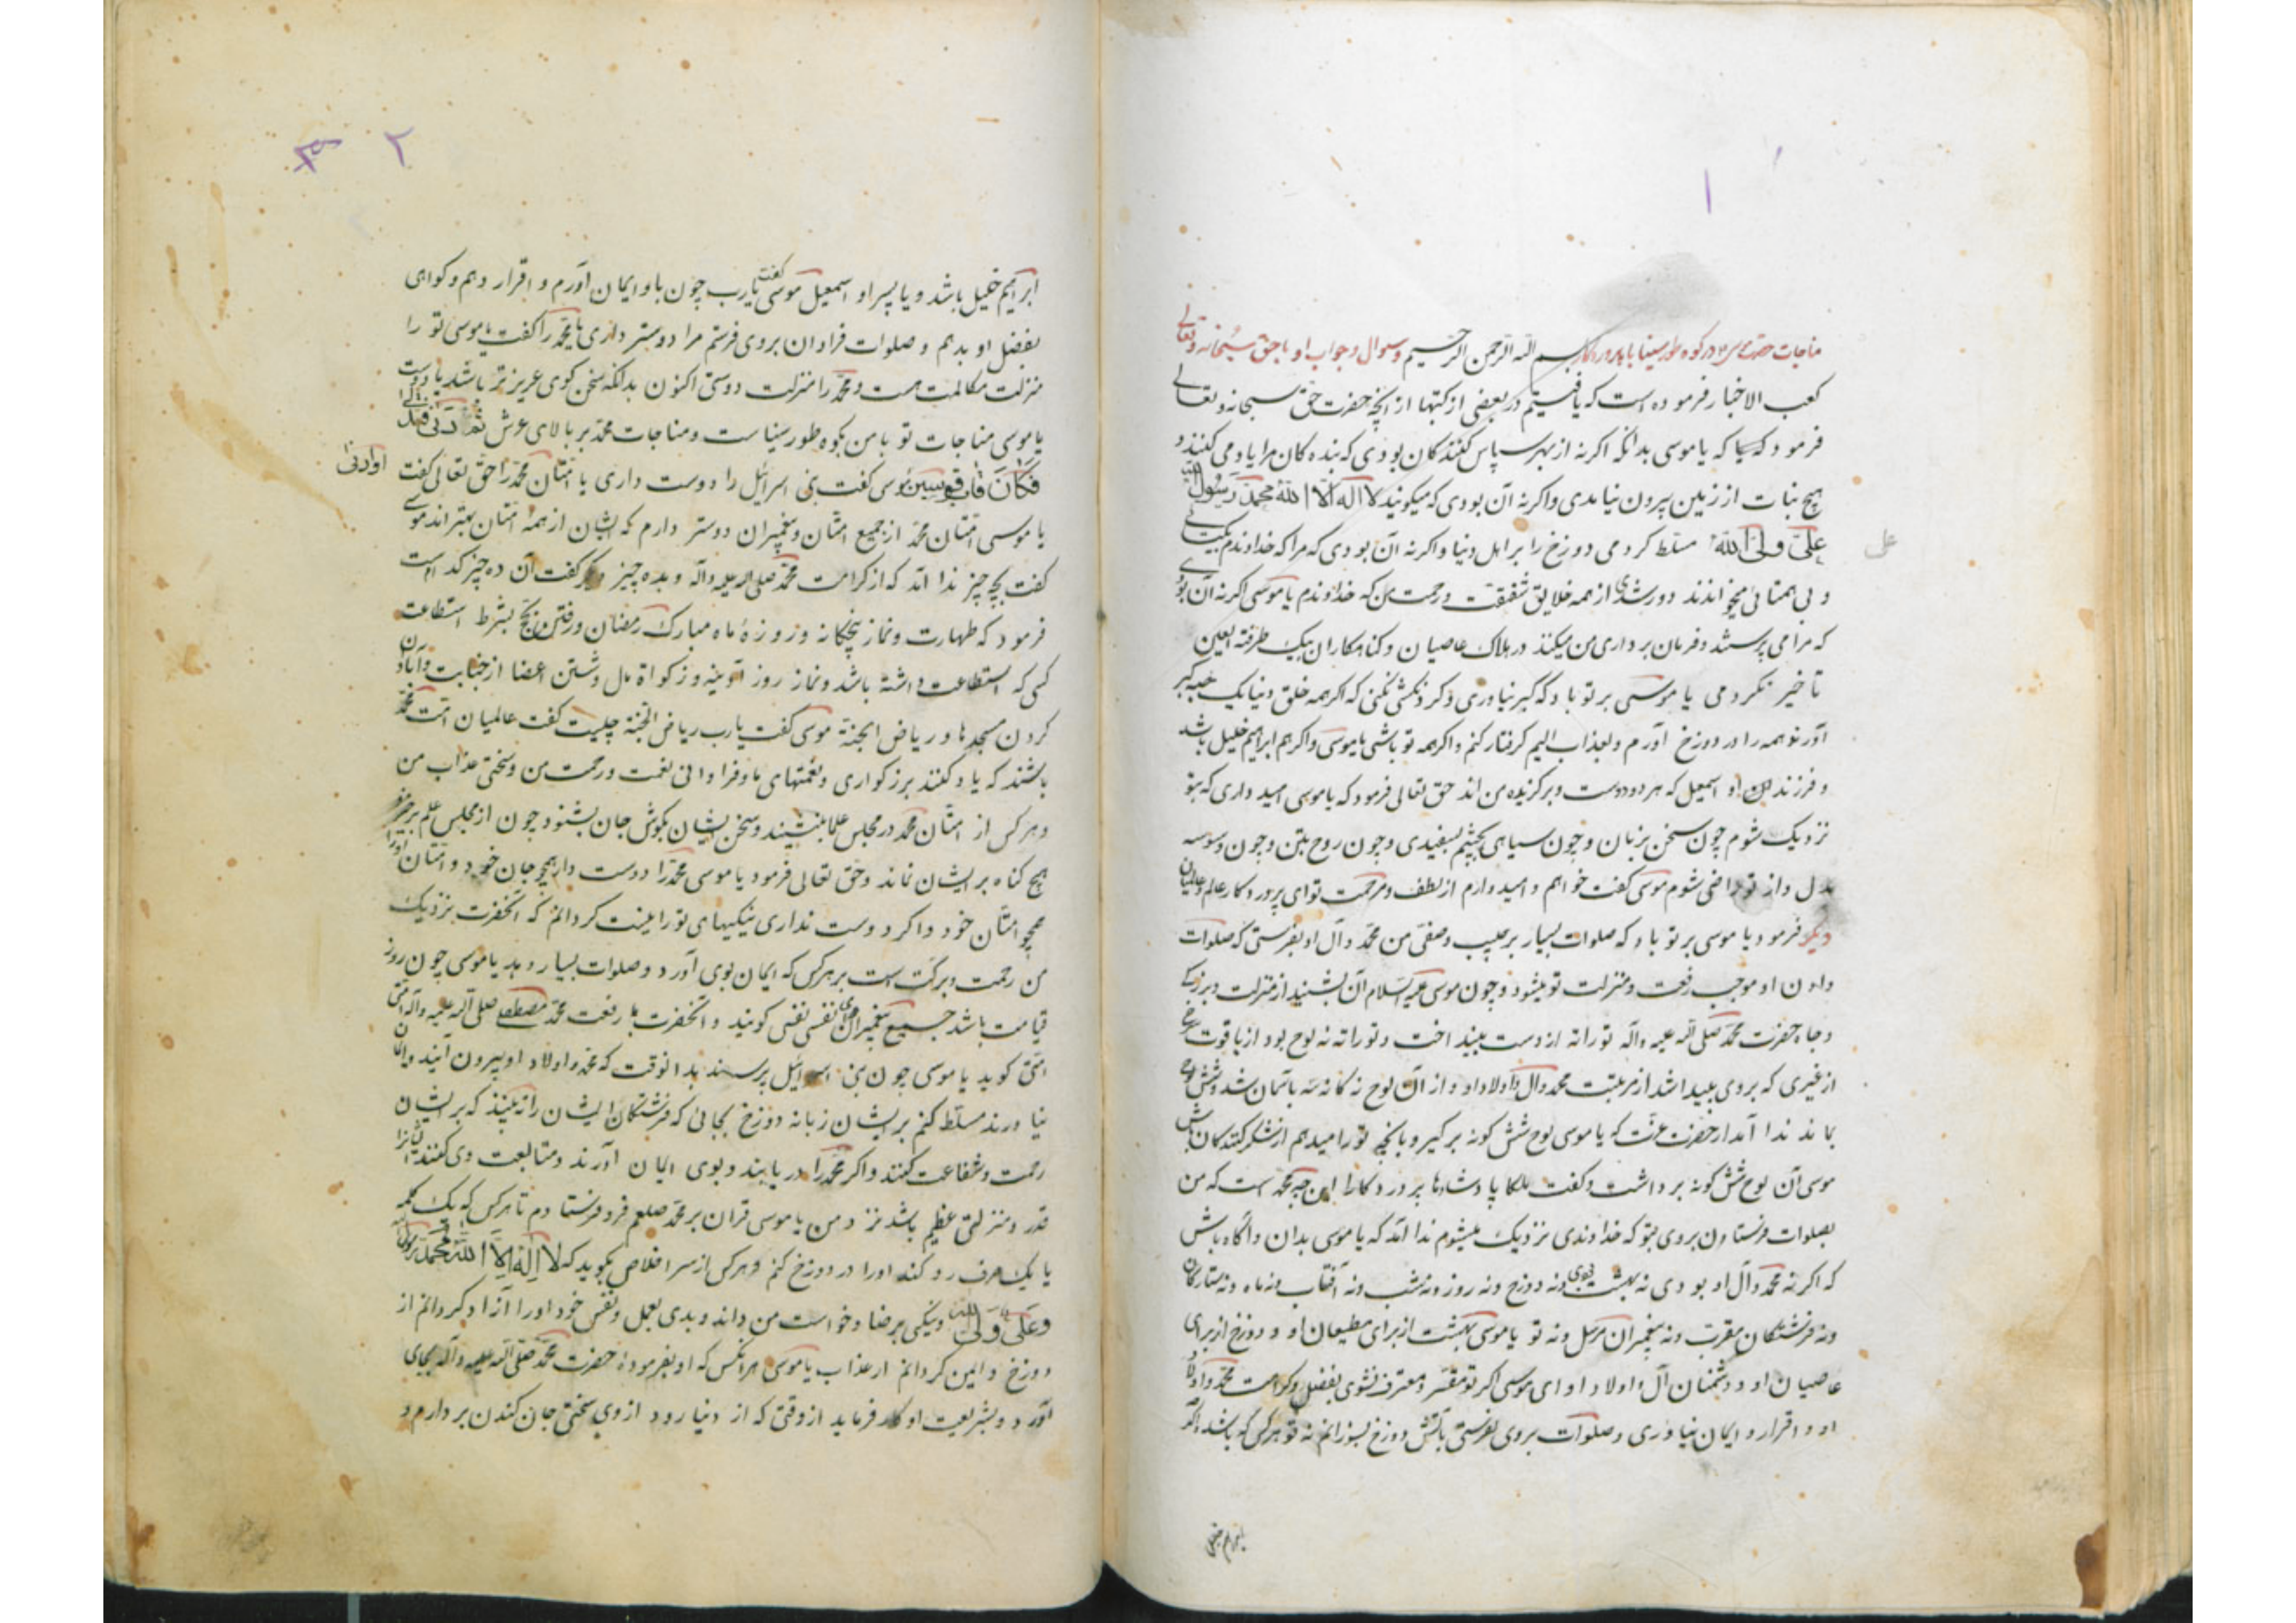 ۱
مناجات حضرت موسی در کوه طور سینا با پروردکار بسم الله الرحمن الرحیم وسوال وجواب او با حق سبحانه وتعالی
کعب الاخبار فرموده است که یافتیم در بعضی از کتبها از آنچه حضرت حق سبحانه وتعالی
فرمود که یا موسی بدانکه اکرنه از بهر سپاس کنندکان بودی که بنده کان مرا یاد می کنند و
هیچ نبات از زمین بیرون نیامدی واکرنه آن بودی که میکویند لا اله الا الله محمد رسول الله
علی ولی الله مسلط کردمی دوزخ را بر اهل دنیا واکرنه آن بودی که مرا که خداوندم بیکتایی
علی
و بی همتائی میخوانند دور شدی از همه خلایق شفقت ورحمت من که خداوندم یا موسی اکرنه آن بودی
که مرا می پرستند وفرمان برداری من میکنند در هلاک عاصیان وکناهکاران بیک طرفة العین
تاخیر نکردمی یا موسی بر تو باد که کبر نیاوری وکردنکشی نکنی که اکر همه خلق دنیا یک حبه کبر
آورند همه را در دوزخ آورم وبعذاب الیم کرفتار کنم واکر همه تو باشی یا موسی واکر هم ابراهیم خلیل باشد
و فرزند او اسمعیل که هر دو دوست وبرکزیده من اند حق تعالی فرمود که یا موسی امید داری که بتو
نزدیک شوم چون سخن بزبان وچون سیاهی بچشم بسفیدی وچون روح بتن وچون وسوسه
بدل واز تو راضی شوم موسی کفت خواهم وامیدوارم از لطف ومرحمت تو ای پروردکار عالم وعالمیان
دیکر فرمود یا موسی بر تو باد که صلوات بسیار بر حبیب وصفی من محمد وآل او بفرستی که صلوات
دادن او موجب رفعت ومنزلت تو میشود وچون موسی علیه السلام آن بشنید از منزلت وبزرکی
وجاه حضرت محمد صلی الله علیه وآله توراته از دست بینداخت وتوراته نه لوح بود از یاقوت سرخ
از غیری که بروی پیدا شد از مرتبت محمد وآل واولاد او واز آن لوح نه کانه سه باسمان شد وشش لوح
بماند ندا آمد از حضرت عزت که یا موسی لوح شش کونه برکیر وبانچه تو را میدهم از شکر کنندکان باش
موسی آن لوح شش کونه برداشت وکفت ملکا پادشاها پروردکارا این چه محمد است که من
بصلوات فرستادن بروی بتو که خداوندی نزدیک میشوم ندا آمد که یا موسی بدان وآکاه باش
که اکرنه محمد وآل او بودی نه بهشت بودی ونه دوزخ ونه روز ونه شب ونه آفتاب ونه ماه ونه ستارکان
ونه فرشتکان مقرب ونه پیغمبران مرسل ونه تو یا موسی بهشت از برای مطیعان او ودوزخ از برای
عاصیان او ودشمنان آل واولاد او ای موسی اکر تو مقر ومعترف نشوی بفضل وکرامت محمد واولاد
او واقرار وایمان نیاوری وصلوات بروی نفرستی بآتش دوزخ بسوزانم نه تو هر کس که باشد اکر
۲ ۳
ابراهیم خلیل باشد ویا پسر او اسمعیل موسی کفت یارب چون باو ایمان آورم واقرار دهم وکواهی
بفضل او بدهم وصلوات فراوان بروی فرستم مرا دوستر داری یا محمد را کفت یا موسی تو را
منزلت مکالمت هست ومحمد را منزلت دوستی اکنون بدانکه سخن کوی عزیزتر باشد یا دوست
یا موسی مناجات تو با من بکوه طور سیناست ومناجات محمد بر بالای عرش ثم دنی فتدلی
فکان قاب قوسین موسی کفت بنی اسرائیل را دوست داری یا امتان محمد را حق تعالی کفت
او ادنی
یا موسی امتان محمد از جمیع امتان وپیغمبران دوستر دارم که ایشان از همه امتان بهتراند موسی
کفت بچه چیز ندا آمد که از کرامت محمد صلی الله علیه وآله وبده چیز دیکر کفت آن ده چیز کدامست
فرمود که طهارت ونماز پنجکانه وروزۀ ماه مبارک رمضان ورفتن بحج بشرط استطاعت
کسی که استطاعت داشته باشد ونماز روز آدینه وزکواة مال وشستن اعضا از جنابت وآبادان
کردن مسجدها وریاض الجنة موسی کفت یارب ریاض الجنة چیست کفت عالمیان امت محمد
باشند که یاد کنند بزرکواری ونعمتهای ما وفراوانی نعمت ورحمت من وسختی عذاب من
وهرکس از امتان محمد در مجلس علما بنشیند وسخن ایشان بکوش جان بشنود چون از مجلس علم برخیزد
هیچ کناه بر ایشان نماند وحق تعالی فرمود یا موسی محمد را دوست دار همچو جان خود وامتان او را
همچو امتان خود واکر دوست نداری نیکیهای تو را نیست کردانم که آنحضرت نزدیک
من رحمت وبرکت است بر هرکس که ایمان بوی آورد وصلوات بسیار دهد یا موسی چون روز
قیامت باشد جمیع پیغمبران نفسی نفسی کویند وآنحضرت با رفعت محمد مصطفی صلی الله علیه وآله امتی
امتی کوید یا موسی چون بنی اسرائیل پرسند بدانوقت که محمد واولاد او بیرون آیند وایمان
نیاورند مسلط کنم بر ایشان زبانه دوزخ بجائی که فرشتکان ایشان را نه بینند که بر ایشان
رحمت وشفاعت کنند واکر محمد را دریابند وبوی ایمان آورند ومتابعت وی کنند ایشانرا
قدر ومنزلتی عظیم باشد نزد من یا موسی قران بر محمد صلعم فرو فرستادم تا هرکس که یک کلمه
یا یک حرف رد کند او را در دوزخ کنم وهرکس از سر اخلاص بکوید که لا اله الا الله محمد رسول الله
وعلی ولی الله ونیکی برضا وخواست من داند وبدی بعمل ونفس خود او را آزاد کردانم از
دوزخ وایمن کردانم از عذاب یا موسی هرآنکس که او بفرمودۀ حضرت محمد صلی الله علیه وآله بجای
آورد وبشریعت او کار فرماید از وقتی که از دنیا رود از وی سختی جان کندن بردارم و